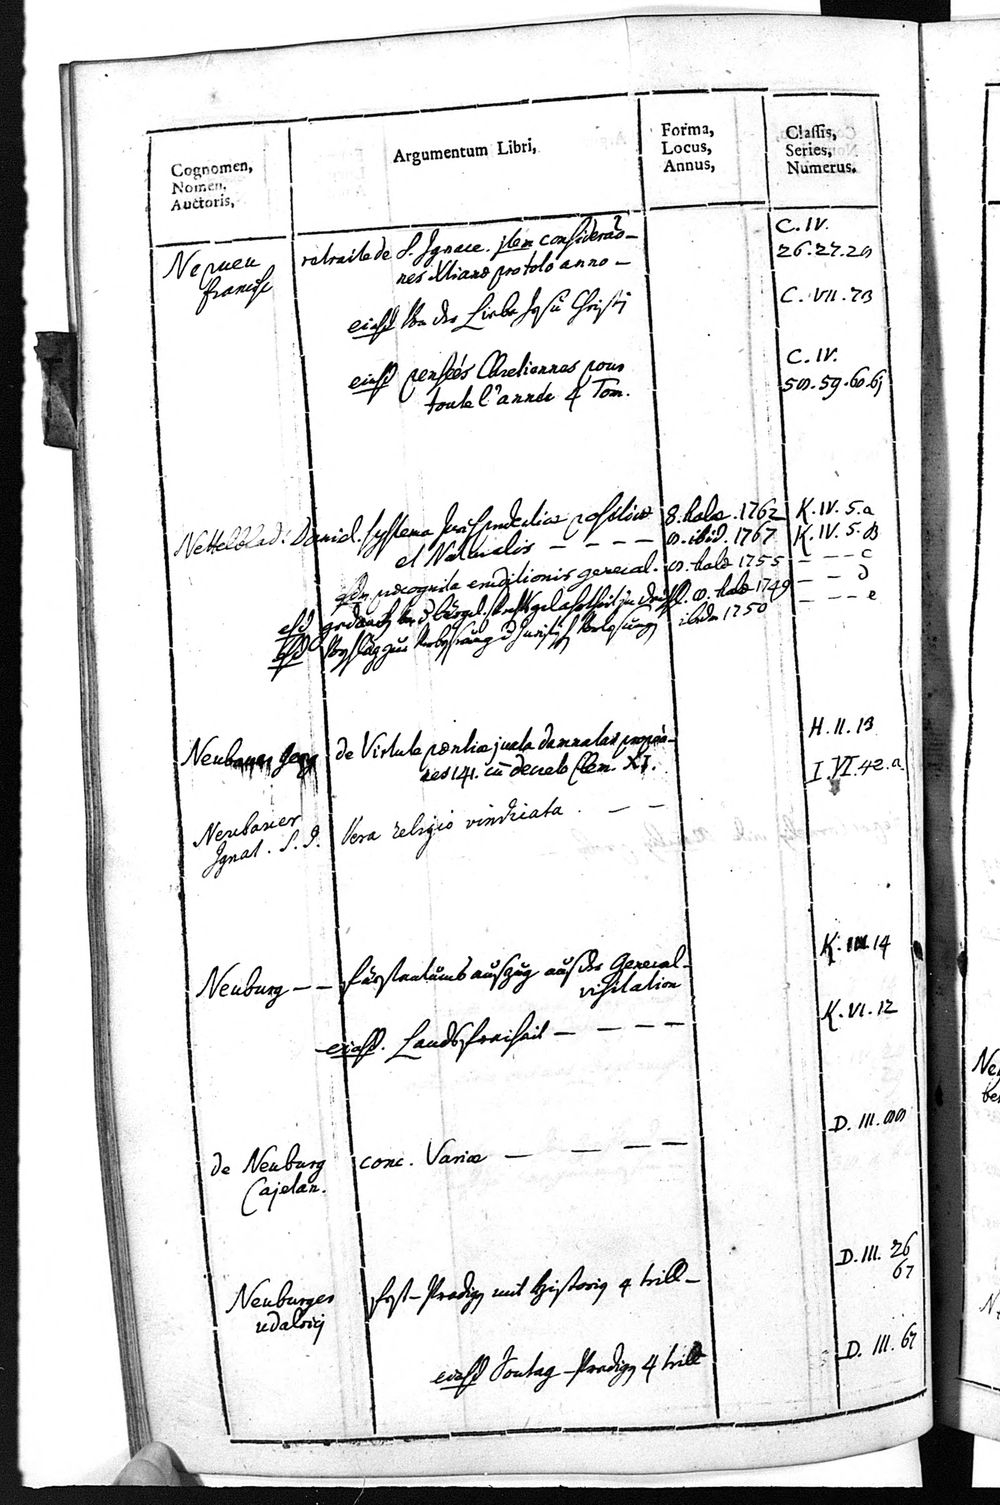 Cognomen,
Nomen,
Auctoris,
Argumentum Libri,
Forma,
Locus,
Annus,
Classis,
Series,
Numerus.
Nepueu
francisc
retraite de S. Ignace. item consideratio-
nes Xtianae pro toto anno –
C. IV.
26.27.28
eiusd Von der Liebe Jesu Christi
C. VII. 73
eiusd pensées Chretiennes pour
toute l'année 4 Tom.
C. IV.
58.59.60.61
Nettelblad: Daniel. systema Jurisprudentiae positivae 8. halae. 1762 K. IV. 5. a
et Naturalis – – – – 8. ibid. 1767 K. IV. 5. B
praecognita eruditionis general. 8. halae 1755 – – – c
8. halae 1749 – – d
ibid. 1750 – – – e
Neubauer Georg
de Virtute
nes 141. cū decreto Clem. XI.
H. II. 13
I. VI. 42. a
Neubauer
Ignat. S. J.
Vera religio vindicata. – –
Neuburg – –
fürstentumbs auszug aus der General-
visitation
K. III 14
eiusd. Landsfreiheit – – – –
K. VI. 12
de Neuburg
Cajetan.
conc. Variae – – – –
D. III. 88
Neuburger
udalrici
fest-Predigen mit Historien 4 theill –
D. III. 26
67
eiusd Sontag-Predigen 4 theill
D. III. 67